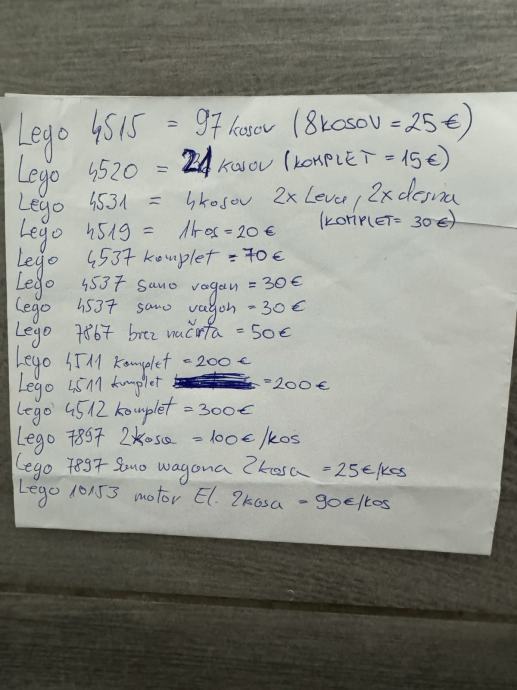 Lego 4515 = 97 kosov (8 KOSOV = 25 €)
Lego 4520 = 21 kosov (KOMPLET = 15 €)
Lego 4531 = 4 kosov 2x Leva, 2x desna
(KOMPLET = 30 €)
Lego 4519 = 1 kos = 20 €
Lego 4537 komplet = 70 €
Lego 4537 samo vagon = 30 €
Lego 4537 samo vagon = 30 €
Lego 7867 brez načrta = 50 €
Lego 4511 komplet = 200 €
Lego 4511 komplet = 200 €
Lego 4512 komplet = 300 €
Lego 7897 2kosa = 100 €/kos
Lego 7897 Samo wagona 2kosa = 25 €/kos
Lego 10153 motor El. 2kosa = 90 €/kos